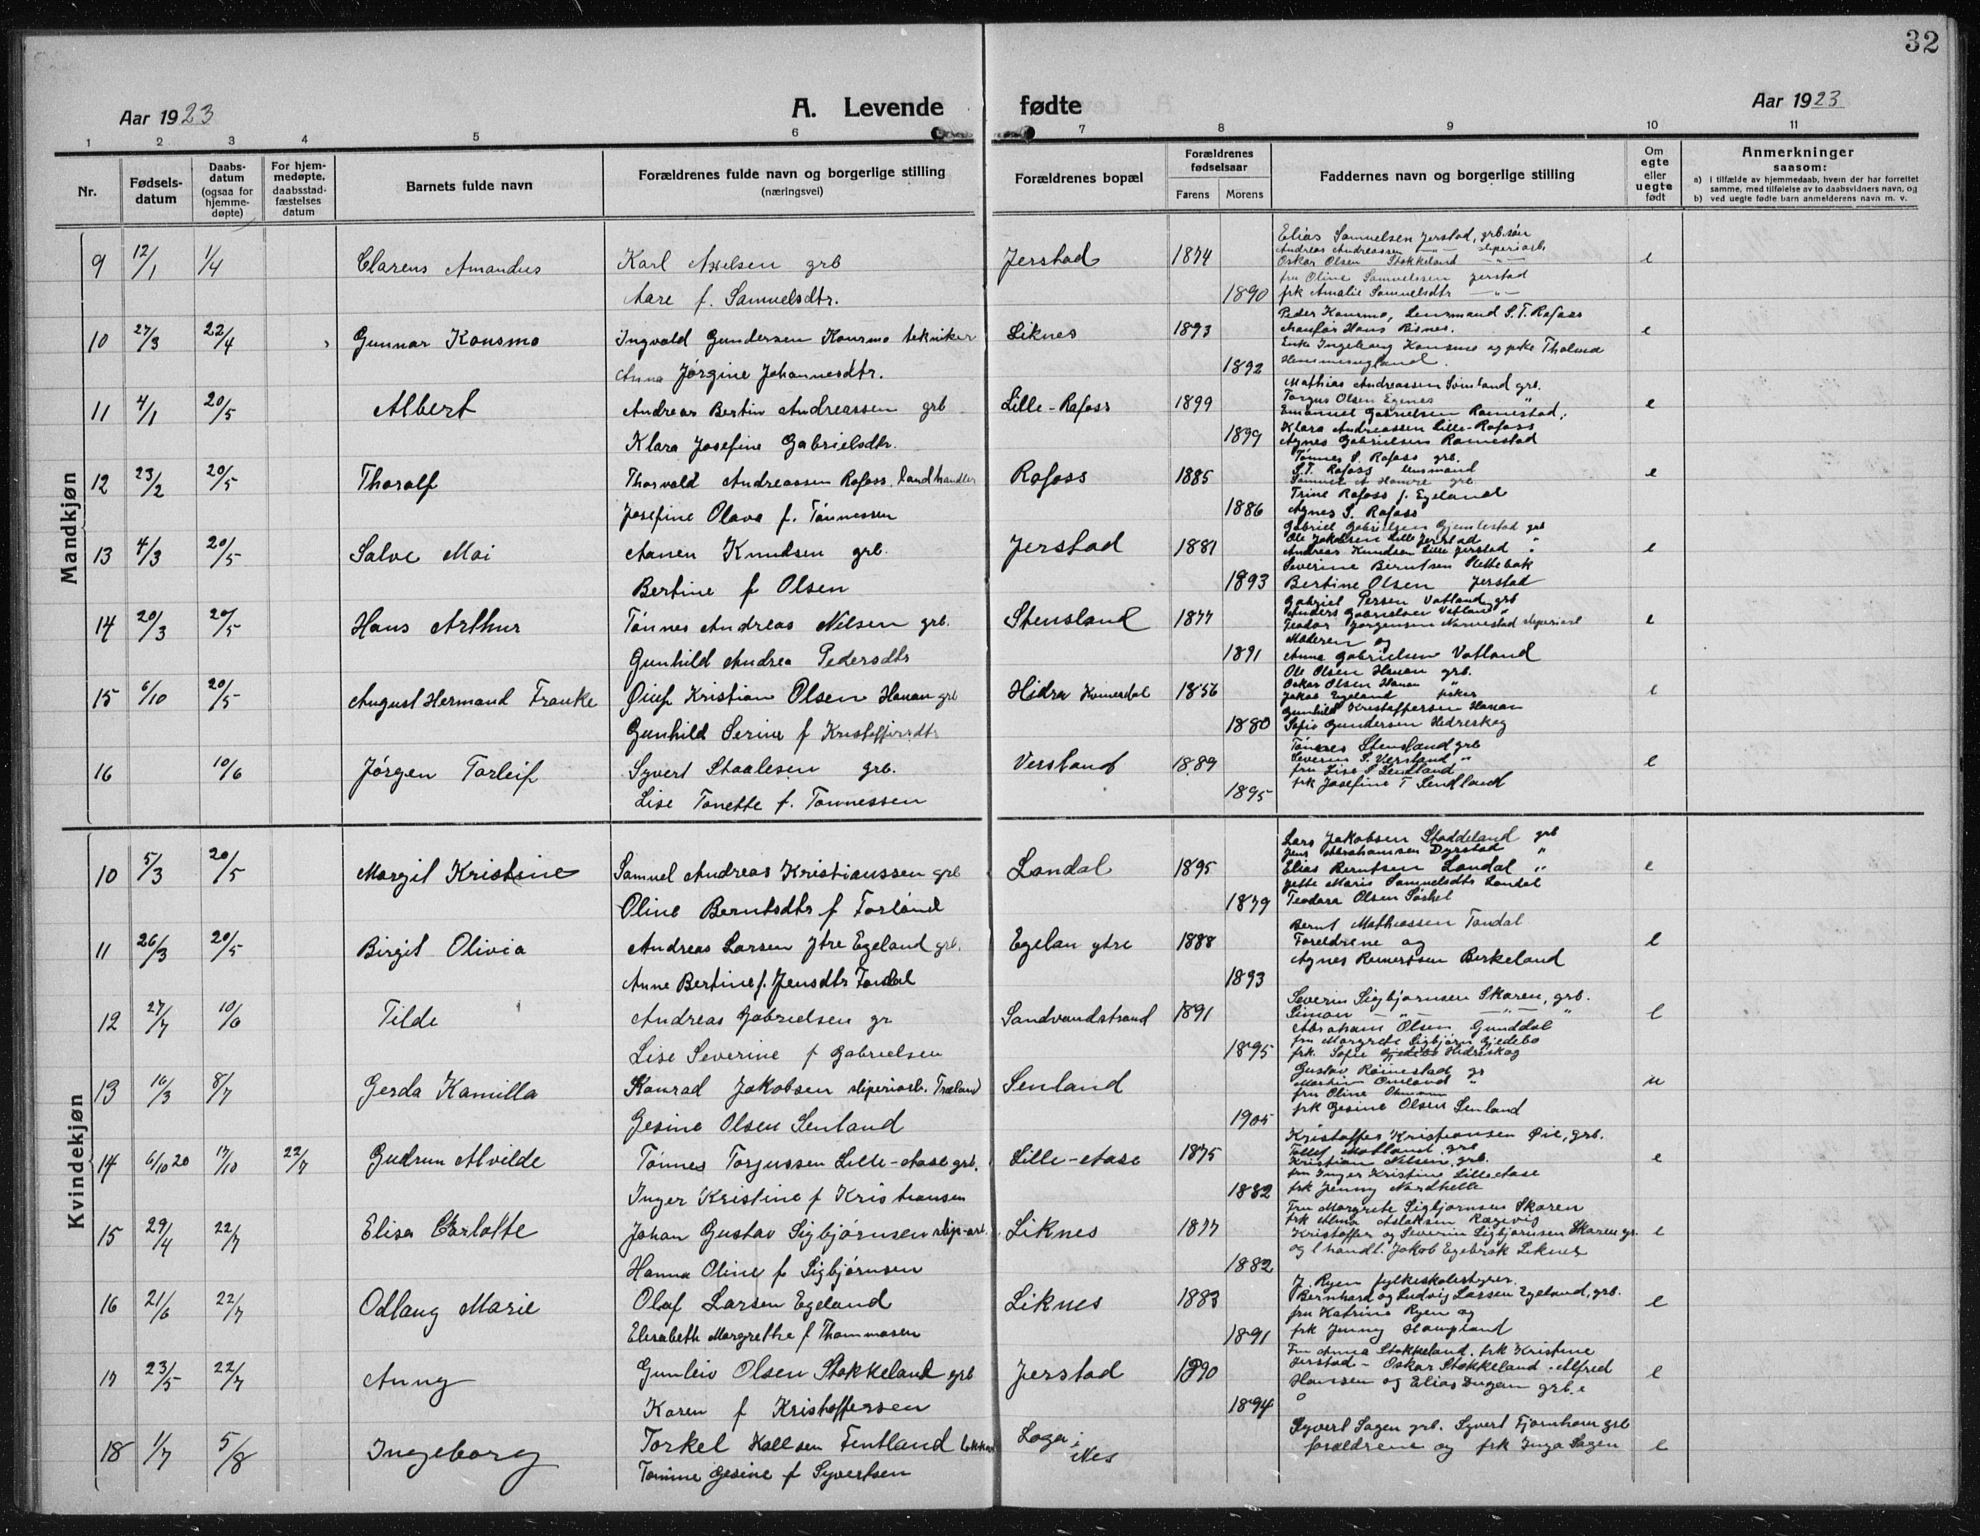 32
Aar 1923
A. Levende fødte
Aar 1923
1 2 3 4 5 6 7 8 9 10 11
Nr.
Fødsels-datum
Daabs-datum (ogsaa for hjemme-døpte)
For hjem-medøpte, daabsstad-fæstelses datum
Barnets fulde navn
Forældrenes fulde navn og borgerlige stilling (næringsvei)
Forældrenes bopæl
Forældrenes fødselsaar
Farens Morens
Faddernes navn og borgerlige stilling
Om egte eller uegte født
Anmerkninger saasom:
a) i tilfælde av hjemmedaab, hvem der har forrettet samme, med tilføielse av to daabsvidners navn, og
b) ved uegte fødte barn anmelderens navn m. v.
Mandkjøn
9 12/1 1/4 Clarens Amandus Karl Axelsen grb Jerstad 1874 e
Aare f. Samuelsdtr. 1890
Elias Samuelsen Jerstad, grb.søn
Andreas Andreassen — " — sliperiarb.
Oskar Olsen Stokkeland — " —
fru Oline Samuelssen Jerstad
frk Amalie Samuelsdtr — " —
10 27/3 22/4 Gunnar Konsmo Ingvald Gundersen Konsmo tekniker Liknes 1893 e
Anna Jørgine Johannesdtr. 1892
Peder Konsmo, Lensmand S.T. Rafoss
Hans Risnes.
Enke Ingeborg Konsmo og frk Tholmea
11 4/1 20/5 Albert Andreas Bertin Andreassen grb Lille-Rafoss 1899 e
Klara Josefine Gabrielsdtr. 1899
Mathias Andreassen Svinland grb.
Torgus Olsen Egenes "
Emanuel Gabrielsen Ramestad,
Klara Andreassen Lille-Rafoss
Agnes Gabrielsen Ramestad
12 23/2 20/5 Tharalf Thorvald Andreassen Rafoss. landhandler Rafoss 1885 e
Josefine Olava f. Tønnessen 1886
Tønnes S. Rafoss grb.
S.T. Rafoss lensmand
Samuel A Hamre grb
Trine Rafoss f. Egeland
Agnes S. Rafoss
13 4/3 20/5 Salve Moi Aanen Knudsen grb. Jerstad 1881 e
Bertine f Olsen 1893
Gabriel Gabrielsen Gjemlestad grb
Ole Jakobsen Lille Jerstad "
Andreas Knudsen Lille Jerstad "
Severine Berntsen Slettebak
Bertine Olsen Jerstad
14 20/3 20/5 Hans Arthur Tønnes Andreas Nilsen grb. Stensland 1877 e
Gunhild Andrea Pedersdtr 1891
Gabriel Persen Vatland grb
Anders Gabrielsen Vatland "
Teodor Jørgensen Narvestad sliperiarb
Moderen og
Anna Gabrielsen Vatland
15 6/10 20/5 August Hermand Franke Oluf Kristian Olsen Hanan grb Hidra Kvinesdal 1856 e
Gunhild Serine f Kristoffersdtr 1880
Ole Olsen Hanan grb.
Oskar Olsen Hanan "
Jakob Egeland fisker
Gunhild Kristoffersen Hanan
Sofie Gundersen Hidreskog
16 10/6 Jørgen Torleif Syvert Staalesen grb. Versland 1889 e
Lise Tonette f. Tønnessen 1895
Tønnes Stensland grb
Severin S. Versland "
fru Lise S Sendland
frk Josefine T Sendland
Kvindekjøn
10 5/3 20/5 Margit Kristine Samuel Andreas Kristianssen grb Landal 1895 e
Oline Berntsdtr f Førland 1879
Lars Jakobsen Stoddeland grb
Jens Abrahamsen Dyrstad "
Elias Berntsen Landal "
Jette Marie Samuelsdtr Landal
Teodora Olsen
11 26/3 20/5 Birgit Olivia Andreas Larsen Ytre Egeland grb. Egelan ytre 1888 e
Anne Bertine f. Jensdtr 1893
Bernt Mathiassen Tandal
Foreldrene og
Agnes Reinertsen Birkeland
12 27/7 10/6 Tilde Andreas Gabrielsen gr Sandvandstrand 1891 e
Lise Severine f Gabrielsen 1895
Severin Sigbjørnsen Skaren, grb.
Simon — " — — " — "
Abraham Olsen Gunddal
fru Margrete Sigbjørn Gjedebo
frk. Sofie Hidreskog
13 16/3 8/7 Gerda Kamilla Konrad Jakobsen sliperiarb. Træland Senland u
Gesine Olsen Senland 1905
Gustav Rømestad gr
Martin Omland "
fru Oline Omland
frk Gesine Olsen Senland
14 6/10 20 17/10 22/7 Gudrun Alvilde Tønnes Torjussen Lille-Aase grb. Lille-Aase 1875 e
Inger Kristine f Kristiansen 1882
Kristoffer Kristiansen Øie, grb.
Tollef Motland, grb
Kristian Nilsen, grb.
fru Inger Kristine Lilleaase
frk Jenny Nordhelle
15 29/4 22/7 Elisa Carlotte Johan Gustav Sigbjørnsen slip-arb. Liknes 1877 e
Hanna Oline f Sigbjørnsen 1882
Fru Margrete Sigbjørnsen Skaren
frk Alma Aslaksen Rægevig
Kristoffer og Severin Sigbjørnsen Skaren gr.
og l.handl. Jakob Egebrok Liknes
16 21/6 22/7 Odlaug Marie Olaf Larsen Egeland Liknes 1883 e
Elisabeth Margrethe f Thommasen 1891
J. Ryen fylkeskolestyrer.
Bernhard og Ludvig Larsen Egeland, grb.
fru Katrine Ryen og
frk Jenny Haugland
17 23/5 22/7 Anny Gunleiv Olsen Stokkeland grb Jerstad 1890 e
Karen f Kristoffersen 1894
Fru Anna Stokkeland. frk Kristine
Jerstad - Oskar Stokkeland - Alfred
Hanssen og Elias Dugan grb.e
18 1/7 5/8 Ingeborg Torkel Kallsen Fintland Loga i Nes e
Tomine Gesine f Syvertsen
Syvert Sagen grb. Syvert Fjernhom grb
forældrene og frk Inga Sagen